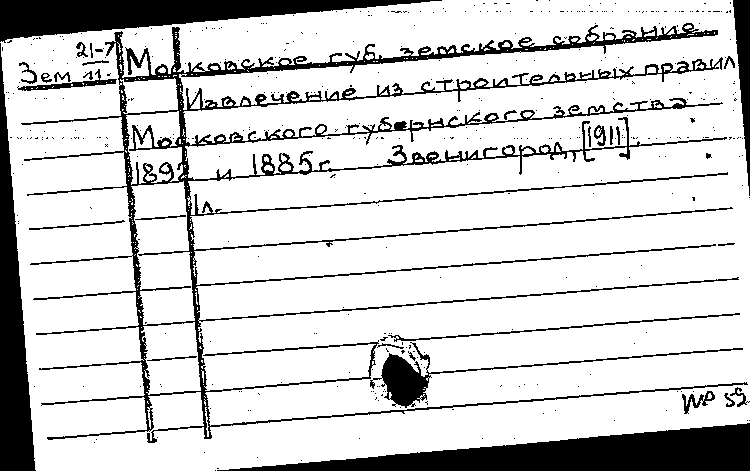 Зем 21-7/11. Московское губ. земское собрание
Извлечение из строительных правил
Московского губернского земства
1892 и 1885г. Звенигород, [1911].
1л.